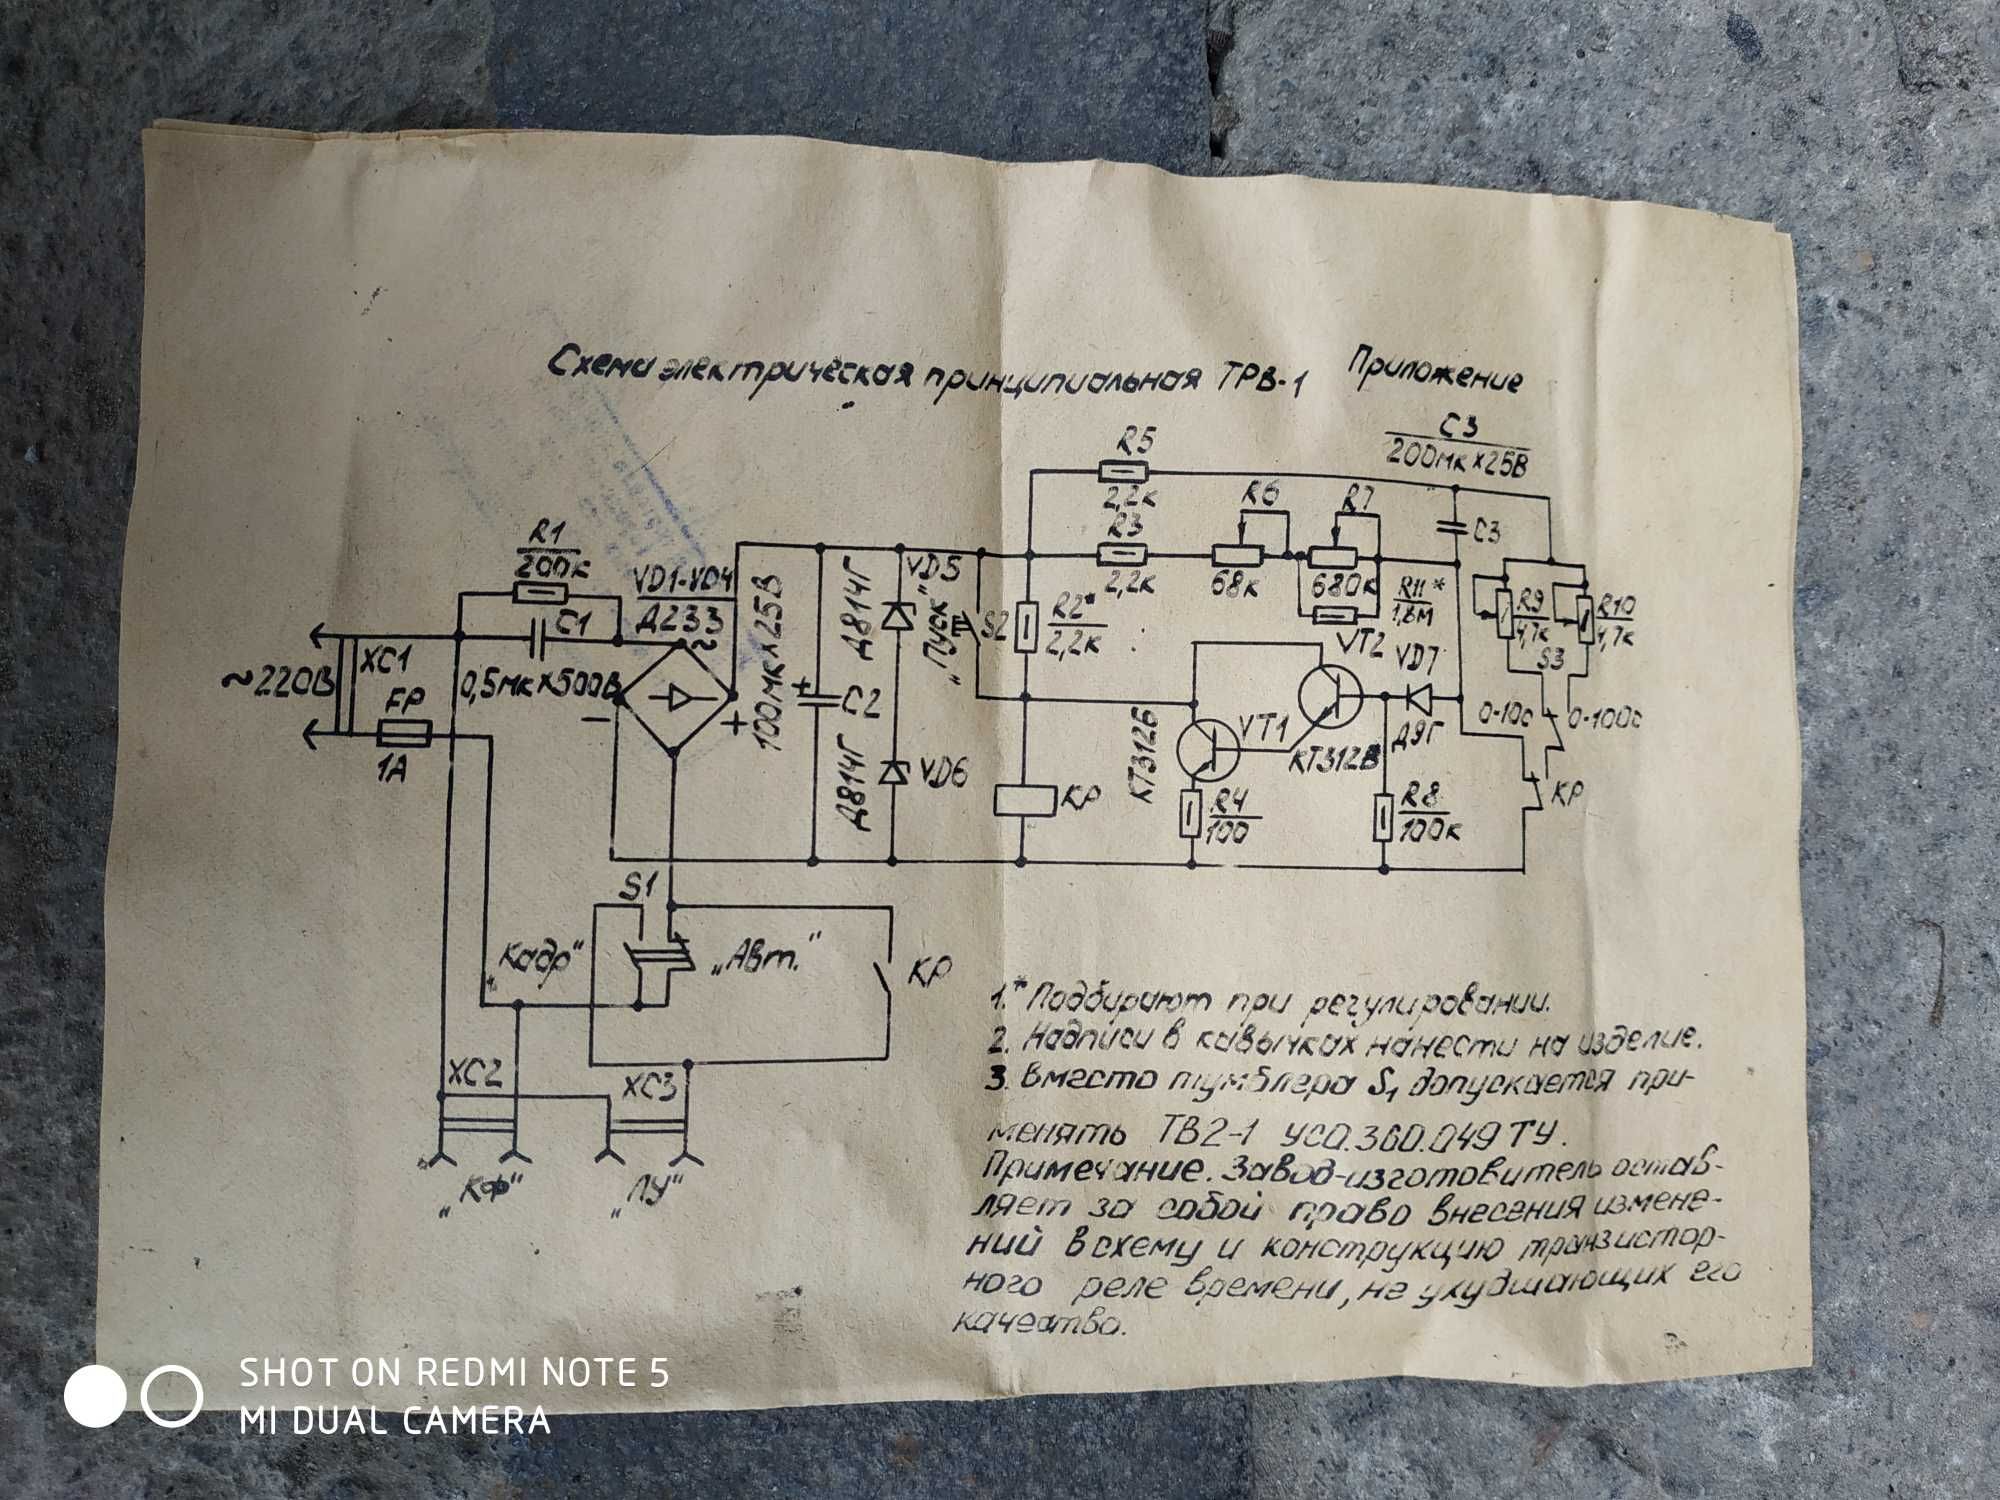 Схема электрическая принципиальная ТРВ-1
Приложение
C3
200мк×25В
R5
2,2к
R6
R7
R3
2,2к
68к
680к
C3
R11*
1,8М
R1
200к
VD1-VD4
Д233
C1
0,5мк×500В
~
−
+
100мк×25В
+
C2
Д814Г
VD5
Д814Г
VD6
„Пуск"
S2
R2*
2,2к
VT2
VD7
Д9Г
R9
4,7к
R10
4,7к
S3
0-10с
0-100с
~220В
XC1
FP
1А
КТ312Б
VT1
КТ312В
КР
R4
100
R8
100к
КР
S1
„Кадр"
„Авт."
КР
XC2
XC3
„КФ"
„ЛУ"
1.* Подбирают при регулировании.
2. Надписи в кавычках нанести на изделие.
3. Вместо тумблера S1 допускается при-
менять ТВ2-1 УСО.360.049 ТУ.
Примечание. Завод-изготовитель остав-
ляет за собой право внесения измене-
ний в схему и конструкцию транзистор-
ного реле времени, не ухудшающих его
качество.
SHOT ON REDMI NOTE 5
MI DUAL CAMERA